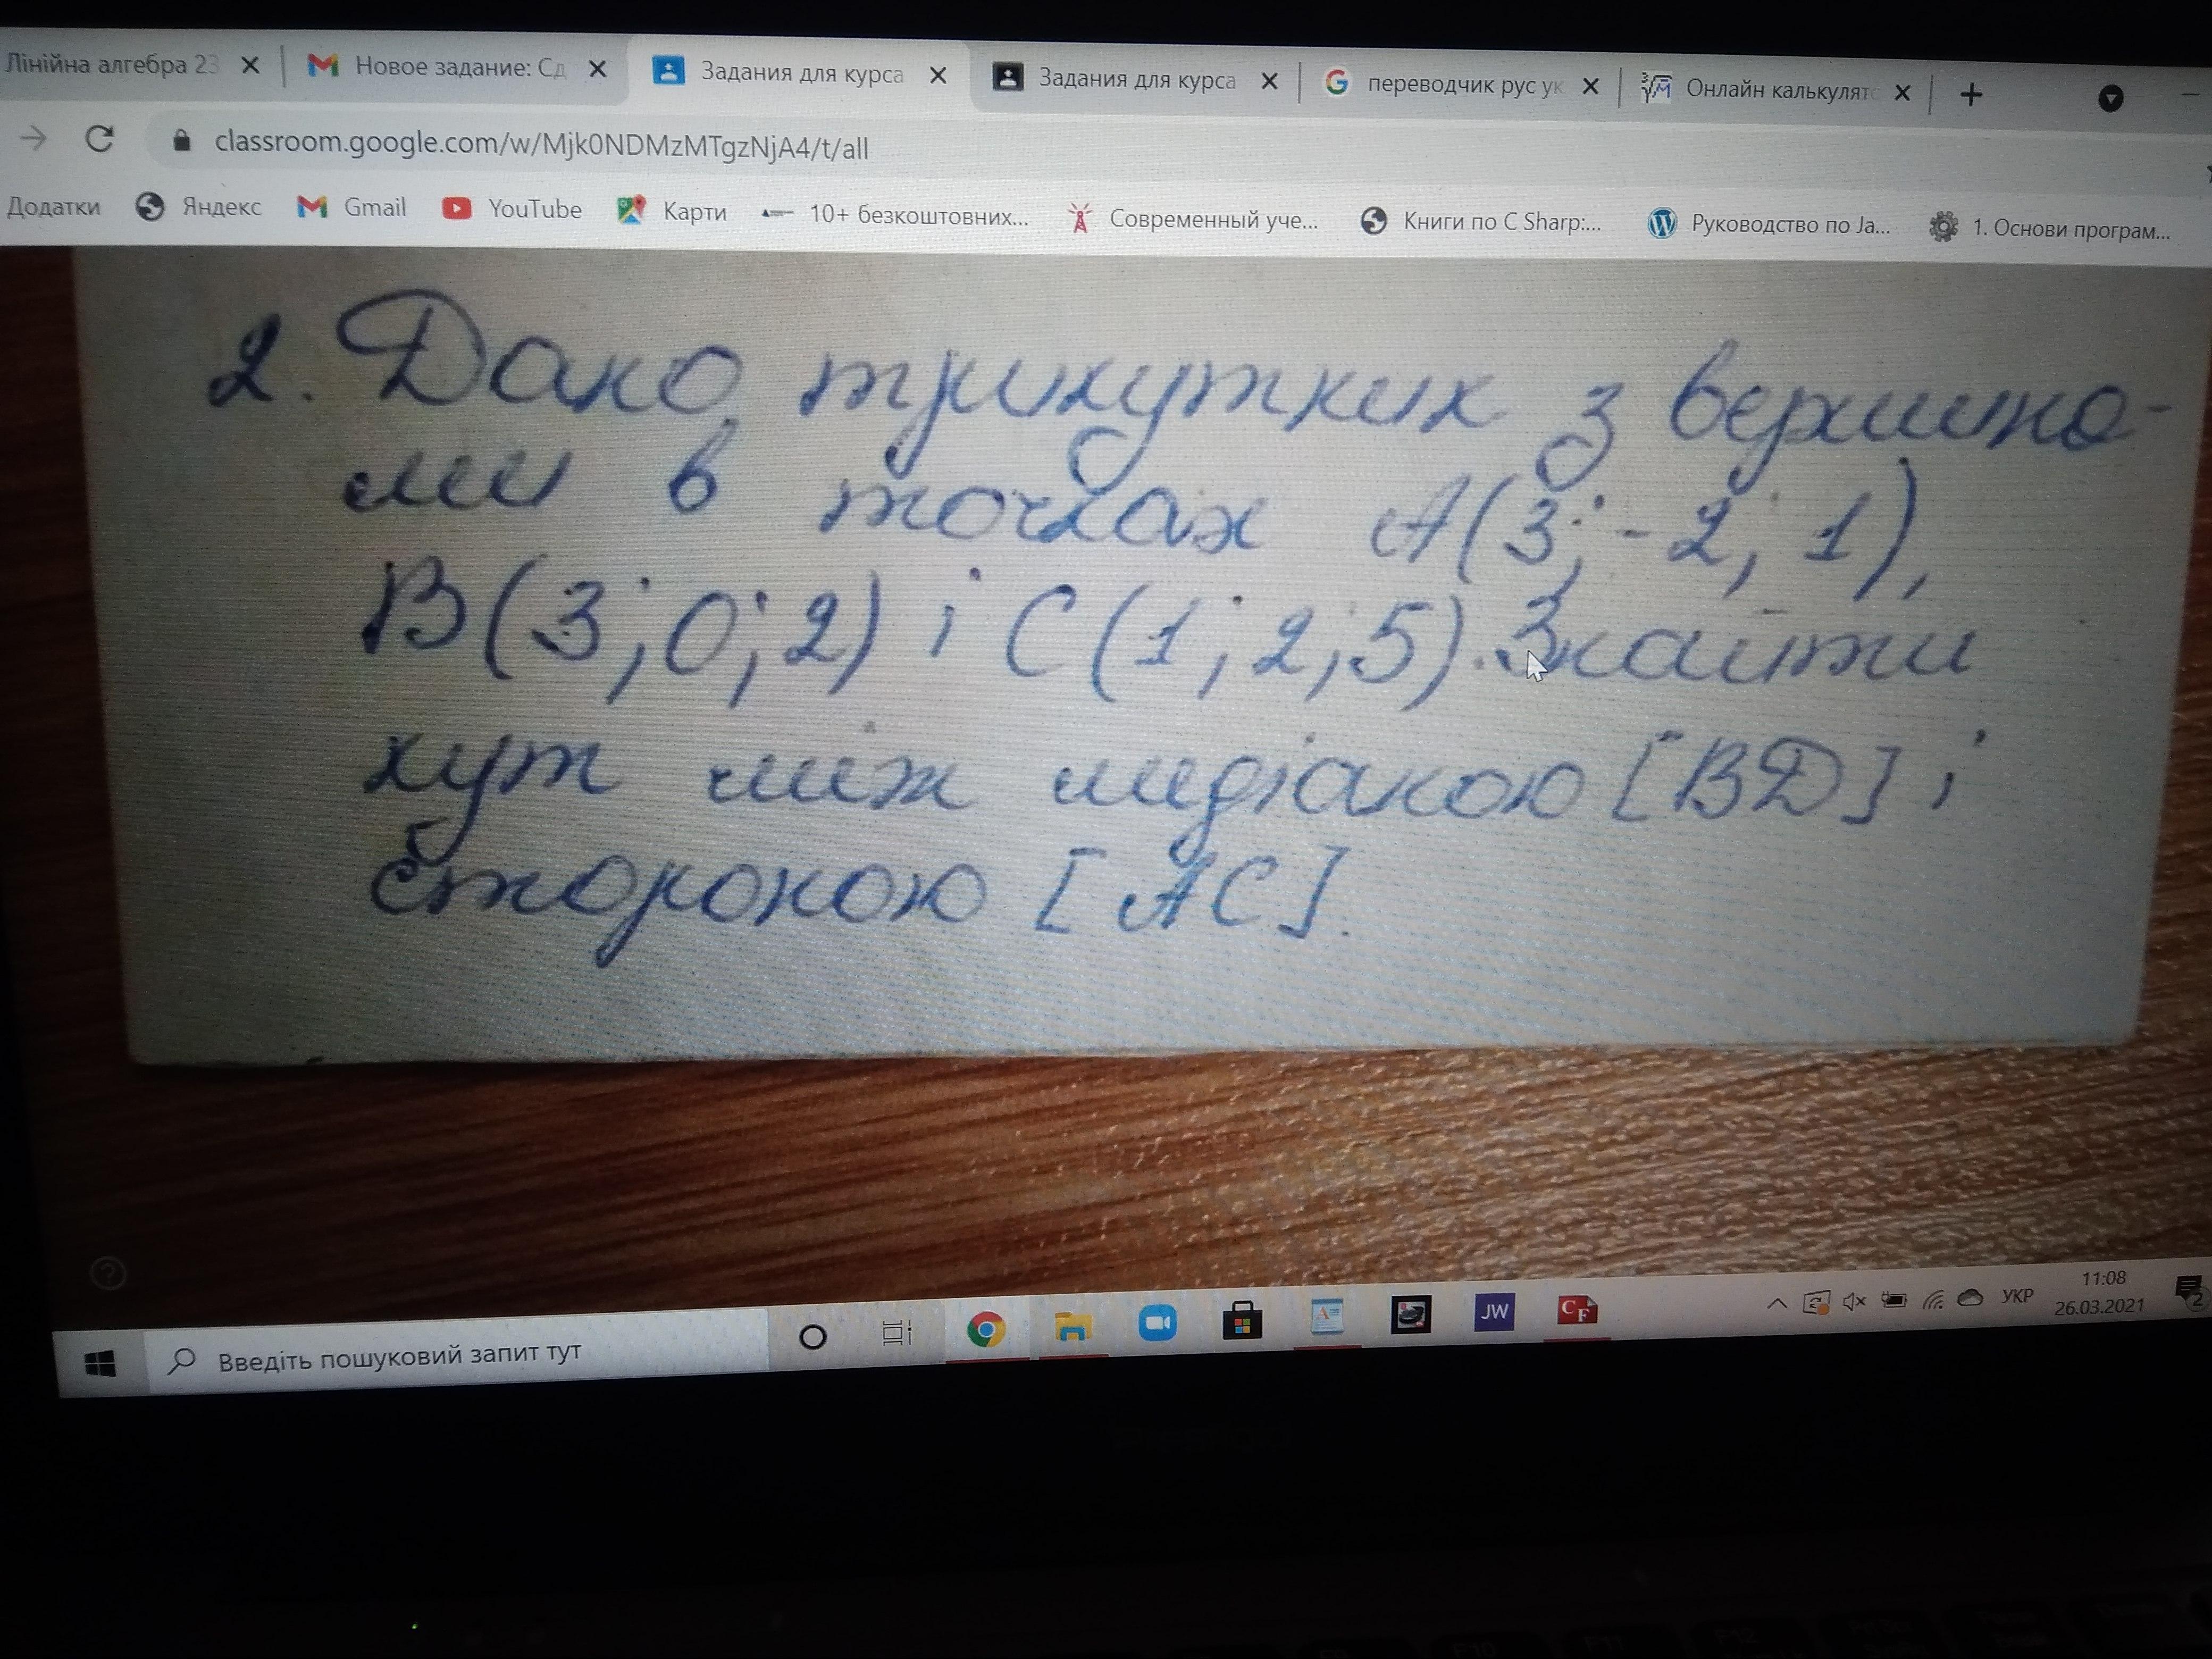 Лінійна алгебра 23
Новое задание: Сд
Задания для курса
Задания для курса
переводчик рус ук
Онлайн калькулято
classroom.google.com/w/Mjk0NDMzMTgzNjA4/t/all
Додатки Яндекс Gmail YouTube Карти 10+ безкоштовних... Современный уче... Книги по C Sharp:... Руководство по Ja... 1. Основи програм...
2. Дано трикутник з вершина-
ми в точках A(3; -2; 1),
B(3; 0; 2) і C(1; 2; 5). Знайти
кут між медіаною [BD] і
стороною [AC].
Введіть пошуковий запит тут
JW
CF
УКР
11:08
26.03.2021
2